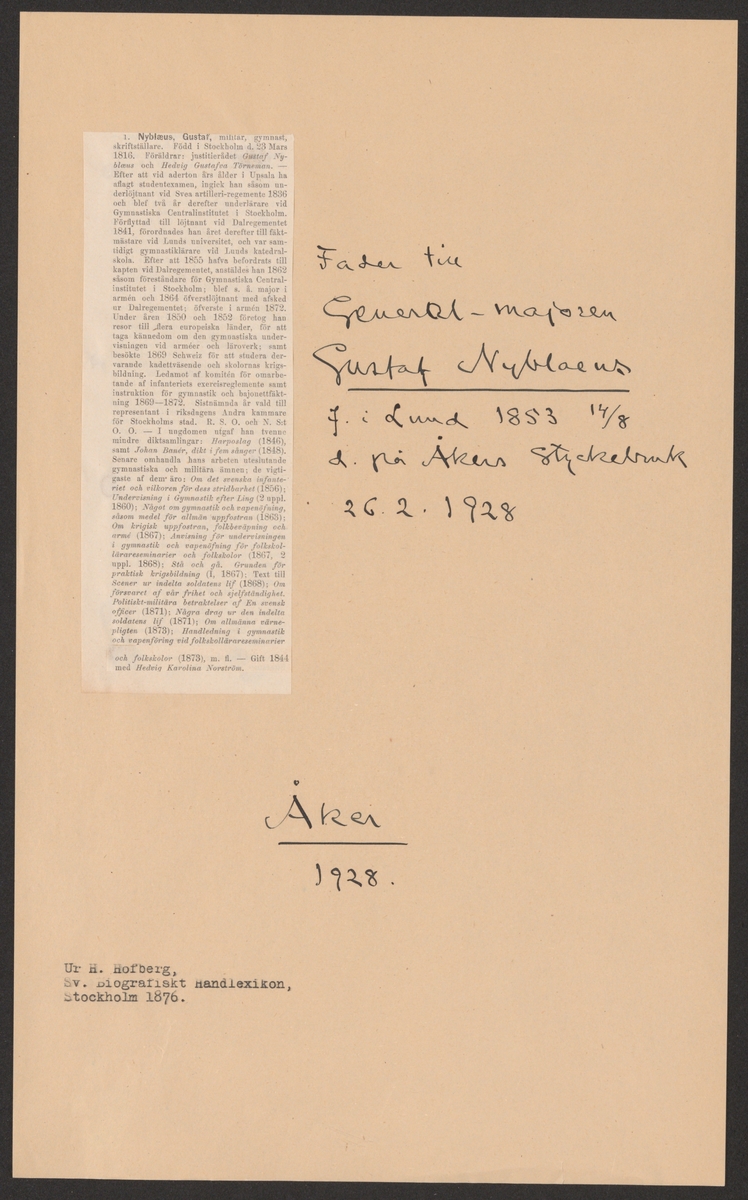 1. Nyblæus, Gustaf, militär, gymnast,
skriftställare. Född i Stockholm d. 23 Mars
1816. Föräldrar: justitierådet Gustaf Ny-
blæus och Hedvig Gustafva Törneman. —
Efter att vid aderton års ålder i Upsala ha
aflagt studentexamen, ingick han såsom un-
derlöjtnant vid Svea artilleri-regemente 1836
och blef två år derefter underlärare vid
Gymnastiska Centralinstitutet i Stockholm.
Förflyttad till löjtnant vid Dalregementet
1841, förordnades han året derefter till fäkt-
mästare vid Lunds universitet, och var sam-
tidigt gymnastiklärare vid Lunds katedral-
skola. Efter att 1855 hafva befordrats till
kapten vid Dalregementet, anstäldes han 1862
såsom föreståndare för Gymnastiska Central-
institutet i Stockholm; blef s. å. major i
armén och 1864 öfverstlöjtnant med afsked
ur Dalregementet; öfverste i armén 1872.
Under åren 1850 och 1852 företog han
resor till flera europeiska länder, för att
taga kännedom om den gymnastiska under-
visningen vid arméer och läroverk; samt
besökte 1869 Schweiz för att studera der-
varande kadettväsende och skolornas krigs-
bildning. Ledamot af komitén för omarbe-
tande af infanteriets exercisreglemente samt
instruktion för gymnastik och bajonettfäkt-
ning 1869—1872. Sistnämnda år vald till
representant i riksdagens Andra kammare
för Stockholms stad. R. S. O. och N. S:t
O. O. — I ungdomen utgaf han tvenne
mindre diktsamlingar: Harposlag (1846),
samt Johan Banér, dikt i fem sånger (1848).
Senare omhandla hans arbeten uteslutande
gymnastiska och militära ämnen; de vigti-
gaste af dem äro; Om det svenska infante-
riet och vilkoren för dess stridbarhet (1856);
Undervisning i Gymnastik efter Ling (2 uppl.
1860); Något om gymnastik och vapenöfning,
såsom medel för allmän uppfostran (1863);
Om krigisk uppfostran, folkbeväpning och
armé (1867); Anvisning för undervisningen
i gymnastik och vapenöfning för folkskol-
lärareseminarier och folkskolor (1867, 2
uppl. 1868); Stå och gå. Grunden för
praktisk krigsbildning (1, 1867); Text till
Scener ur indelta soldatens lif (1868); Om
försvaret af vår frihet och sjelfständighet.
Politiskt-militära betraktelser af En svensk
officer (1871); Några drag ur den indelta
soldatens lif (1871); Om allmänna värne-
pligten (1873); Handledning i gymnastik
och vapenföring vid folkskollärareseminarier
och folkskolor (1873), m. fl. — Gift 1844
med Hedvig Karolina Norström.
Fader till
General-majoren
Gustaf Nyblaeus
f. i Lund 1853 14/8
d. på Åkers Styckebruk
26. 2. 1928
Åker
1928.
Ur H. Hofberg,
Sv. Biografiskt Handlexikon,
Stockholm 1876.